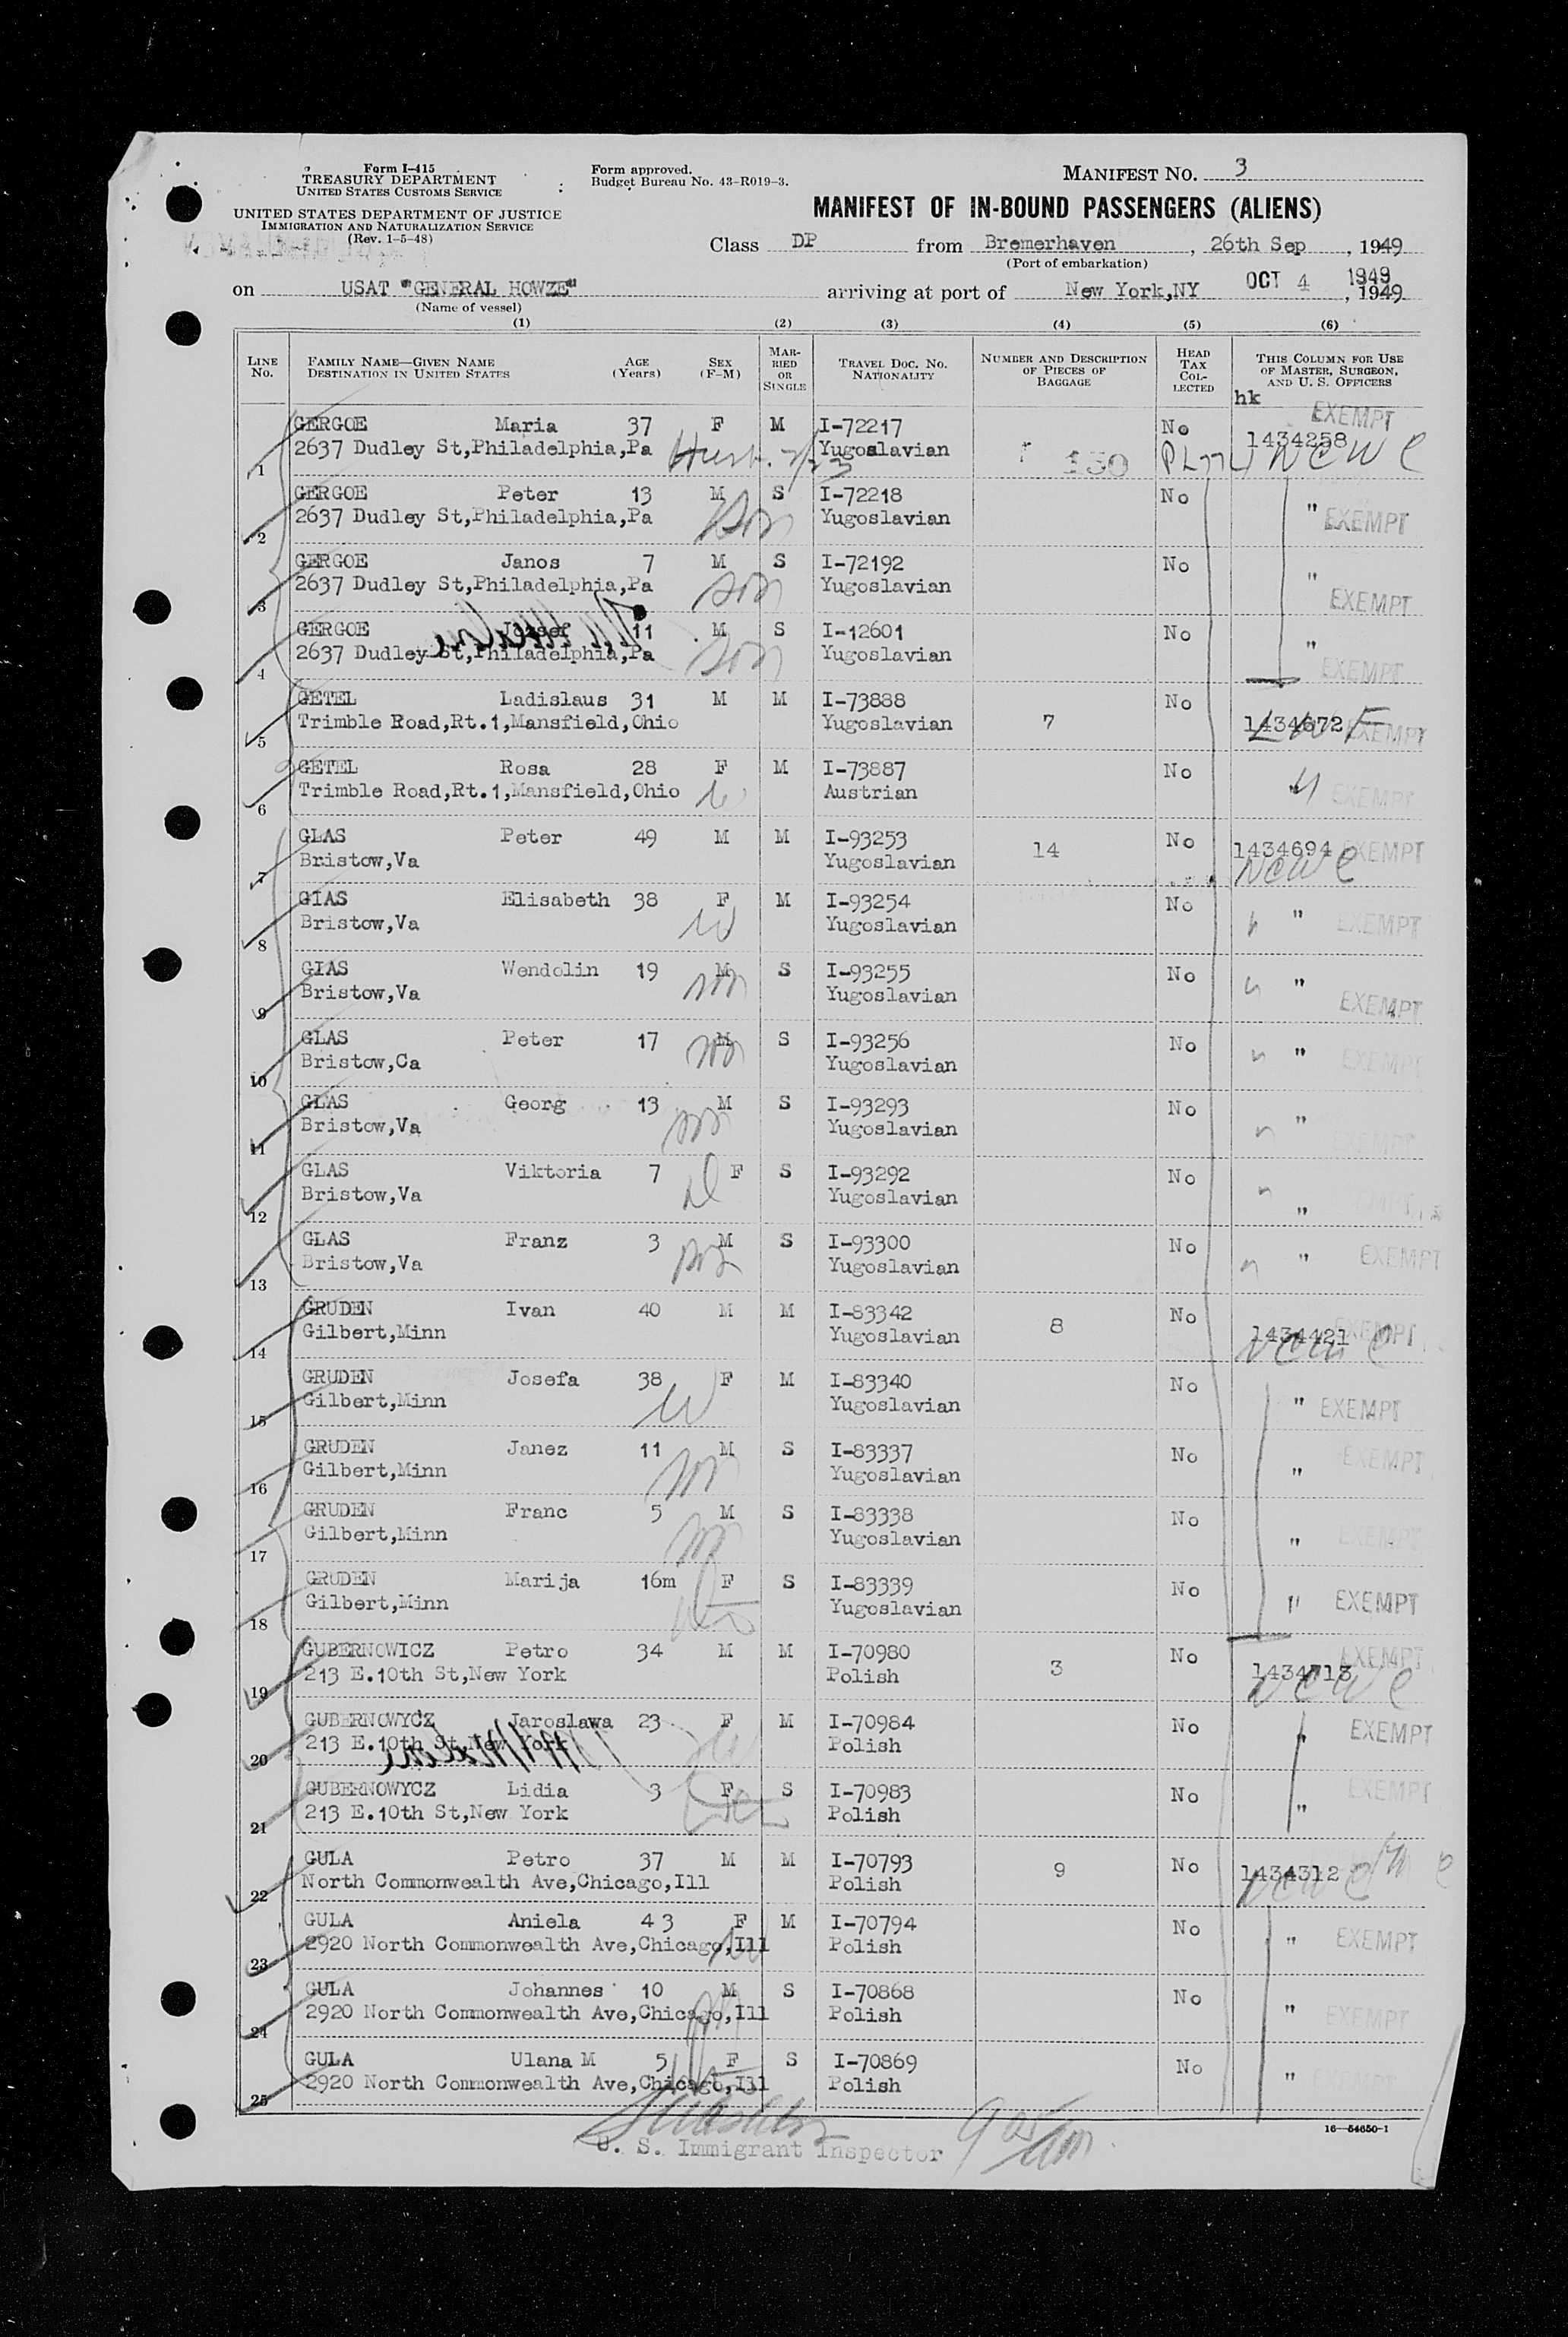 Form I-415
TREASURY DEPARTMENT
UNITED STATES CUSTOMS SERVICE
UNITED STATES DEPARTMENT OF JUSTICE
IMMIGRATION AND NATURALIZATION SERVICE
(Rev. 1-5-48)
Form approved.
Budget Bureau No. 43-R019-3.
MANIFEST NO. 3
MANIFEST OF IN-BOUND PASSENGERS (ALIENS)
Class DP from Bremerhaven, 26th Sep, 1949
(Port of embarkation)
on USAT "GENERAL HOWZE" arriving at port of New York,NY OCT 4 1949, 1949
(Name of vessel)
(1) (2) (3) (4) (5) (6)
LINE No. FAMILY NAME—GIVEN NAME DESTINATION IN UNITED STATES AGE (Years) SEX (F-M) MARRIED OR SINGLE TRAVEL DOC. NO. NATIONALITY NUMBER AND DESCRIPTION OF PIECES OF BAGGAGE HEAD TAX COLLECTED THIS COLUMN FOR USE OF MASTER, SURGEON, AND U. S. OFFICERS
hk
GERGOE Maria 37 F M I-72217 No EXEMPT
1 2637 Dudley St,Philadelphia,Pa Yugoslavian 150 1434258 NCWC
GERGOE Peter 13 M S I-72218 No
2 2637 Dudley St,Philadelphia,Pa son Yugoslavian " EXEMPT
GERGOE Janos 7 M S I-72192 No
3 2637 Dudley St,Philadelphia,Pa son Yugoslavian " EXEMPT
GERGOE Jozsef 11 M S I-12601 No
4 2637 Dudley St,Philadelphia,Pa son Yugoslavian " EXEMPT
GETEL Ladislaus 31 M M I-73888 No
5 Trimble Road,Rt.1,Mansfield,Ohio Yugoslavian 7 1434672 LWF EXEMPT
GETEL Rosa 28 F M I-73887 No
6 Trimble Road,Rt.1,Mansfield,Ohio w Austrian " EXEMPT
GLAS Peter 49 M M I-93253 No
7 Bristow,Va Yugoslavian 14 1434694 EXEMPT NCWC
GIAS Elisabeth 38 F M I-93254 No
8 Bristow,Va w Yugoslavian " EXEMPT
GIAS Wendolin 19 M S I-93255 No
9 Bristow,Va son Yugoslavian " EXEMPT
GLAS Peter 17 M S I-93256 No
10 Bristow,Ca son Yugoslavian " EXEMPT
GLAS Georg 13 M S I-93293 No
11 Bristow,Va son Yugoslavian " EXEMPT
GLAS Viktoria 7 F S I-93292 No
12 Bristow,Va d Yugoslavian "
GLAS Franz 3 M S I-93300 No
13 Bristow,Va son Yugoslavian " EXEMPT
GRUDEN Ivan 40 M M I-83342 No
14 Gilbert,Minn Yugoslavian 8 1434421 EXEMPT NCWC
GRUDEN Josefa 38 F M I-83340 No
15 Gilbert,Minn w Yugoslavian " EXEMPT
GRUDEN Janez 11 M S I-83337 No
16 Gilbert,Minn son Yugoslavian " EXEMPT
GRUDEN Franc 5 M S I-83338 No
17 Gilbert,Minn Yugoslavian " EXEMPT
GRUDEN Marija 16m F S I-83339 No
18 Gilbert,Minn Yugoslavian " EXEMPT
GUBERNOWICZ Petro 34 M M I-70980 No EXEMPT
19 213 E.10th St,New York Polish 3 1434713 NCWC
GUBERNOWYCZ Jaroslawa 23 F M I-70984 No
20 213 E.10th St,New York Polish " EXEMPT
GUBERNOWYCZ Lidia 3 F S I-70983 No EXEMPT
21 213 E.10th St,New York Polish "
GULA Petro 37 M M I-70793 No
22 North Commonwealth Ave,Chicago,Ill Polish 9 1434312 NCWC
GULA Aniela 43 F M I-70794 No
23 2920 North Commonwealth Ave,Chicago,Ill Polish " EXEMPT
GULA Johannes 10 M S I-70868 No
24 2920 North Commonwealth Ave,Chicago,Ill Polish " EXEMPT
GULA Ulana M 5 F S I-70869 No
25 2920 North Commonwealth Ave,Chicago,Ill Polish " EXEMPT
16—54650-1
U. S. Immigrant Inspector